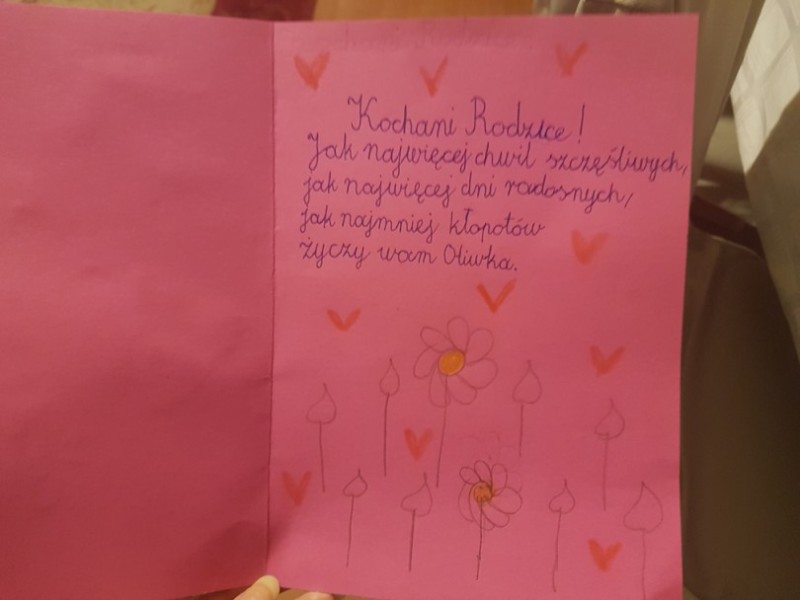 Kochani Rodzice!
Jak najwięcej chwil szczęśliwych,
jak najwięcej dni radosnych,
jak najmniej kłopotów
życzy wam Oliwka.